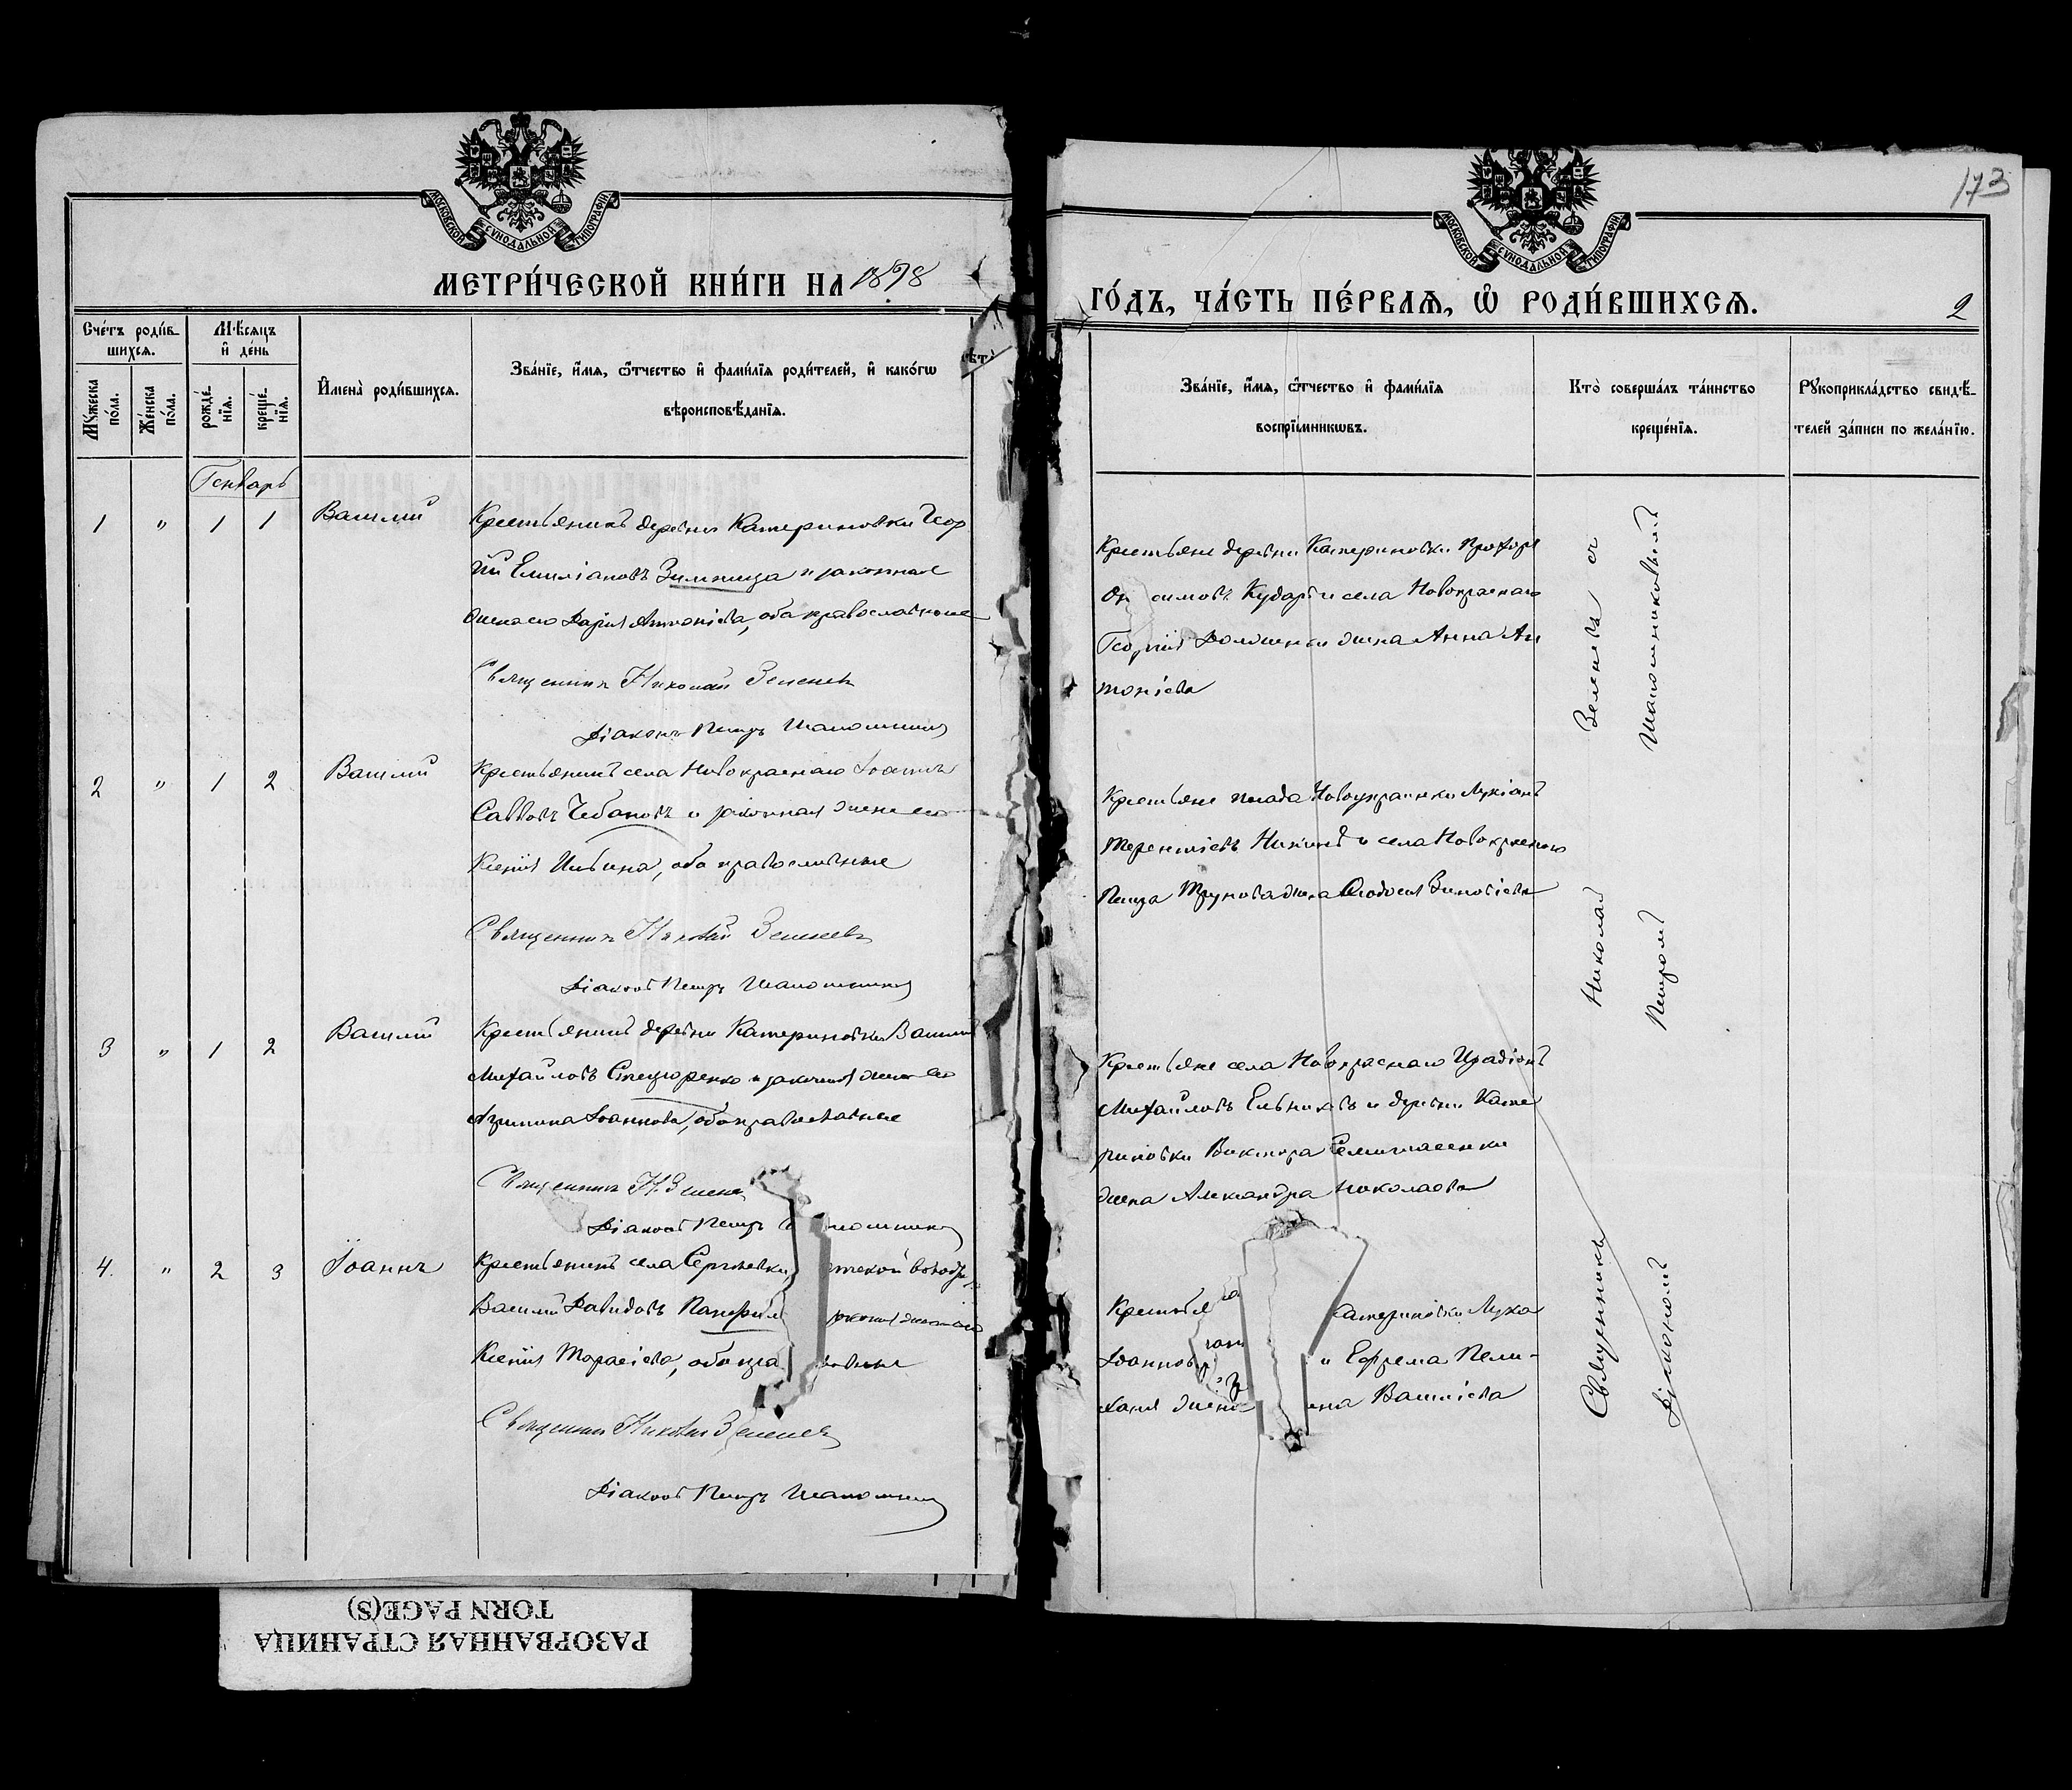 173
МОСКОВСКОЙ СѴНОДАЛЬНОЙ ТИПОГРАФІИ
МОСКОВСКОЙ СѴНОДАЛЬНОЙ ТИПОГРАФІИ
МЕТРИ́ЧЕСКОЙ КНИ́ГИ НА 1898
ГО́ДЪ, ЧА́СТЬ ПЕ́РВАЯ, Ѡ҆ РОДИ́ВШИХСЯ.
2
Сче́тъ роди́в-
шихся.
Мꙋ́жеска
по́ла.
Же́нска
по́ла.
Мѣ́сяцъ
и҆ де́нь
рожде́-
нїя.
креще́-
нїя.
И҆мена̀ роди́вшихся.
Зва́нїе, и҆́мя, ѻ҆́тчество и҆ фами́лїя роди́телей, и҆ како́гѡ
вѣроисповѣ́данїя.
Зва́нїе, и҆́мя, ѻ҆́тчество и҆ фами́лїя
воспрїе́мникѡвъ.
Кто̀ соверша́лъ та́инство
креще́нїя.
Рꙋкоприкла́дство свидѣ́-
телей за́писи по жела́нїю.
Генварь
1 " 1 1 Василий
Крестьянинъ деревни Катериновки Геор
гій Емиліановъ Зимница и законная
жена его Дарія Антоніева, оба православные
Священникъ Николай Зеленевъ
Діаконъ Петръ Шапошников
Крестьяне деревни Катериновки Прохоръ
симовъ и села Новокраснаго
Георгія жена Анна Ан
тоніева
2 " 1 2 Василий
Крестьянинъ села Новокраснаго Іоаннъ
Саввовъ Чебановъ и законная жена его
Ксенія, оба православные
Священникъ Николай Зеленевъ
Діаконъ Петръ Шапошников
Крестьяне посада Новоукраинки Лукіанъ
Терентіевъ и села Новокраснаго
Петра Трунова жена Ѳеодосія Зиновіева
3 " 1 2 Василий
Крестьянинъ деревни Катериновки Василий
Михайловъ Стецюренко и законная жена его
Агрипина Іоаннова, оба православные
Священникъ Н. Зелене
Діаконъ Петръ пошников
Крестьяне села Новокраснаго Иродіонъ
Михайловъ Ельниковъ и деревни Кате
риновки Виктора
жена Александра Николаева
4. " 2 3 Іоаннъ
Крестьянинъ села Сергѣевки
Василий Давидовъ Панфил законная жена его
Ксенія Тарасіева, оба пра вные
Священникъ Николай Зеленевъ
Діаконъ Петръ Шапошников
Крестья Катериновки Лука
Іоаннов и Ефрема Пели-
хани жена ина Василіева
Священникъ Николай Зеленевъ съ
Діакономъ Петромъ Шапошниковымъ
РАЗОРВАННАЯ СТРАНИЦА
TORN PAGE(S)